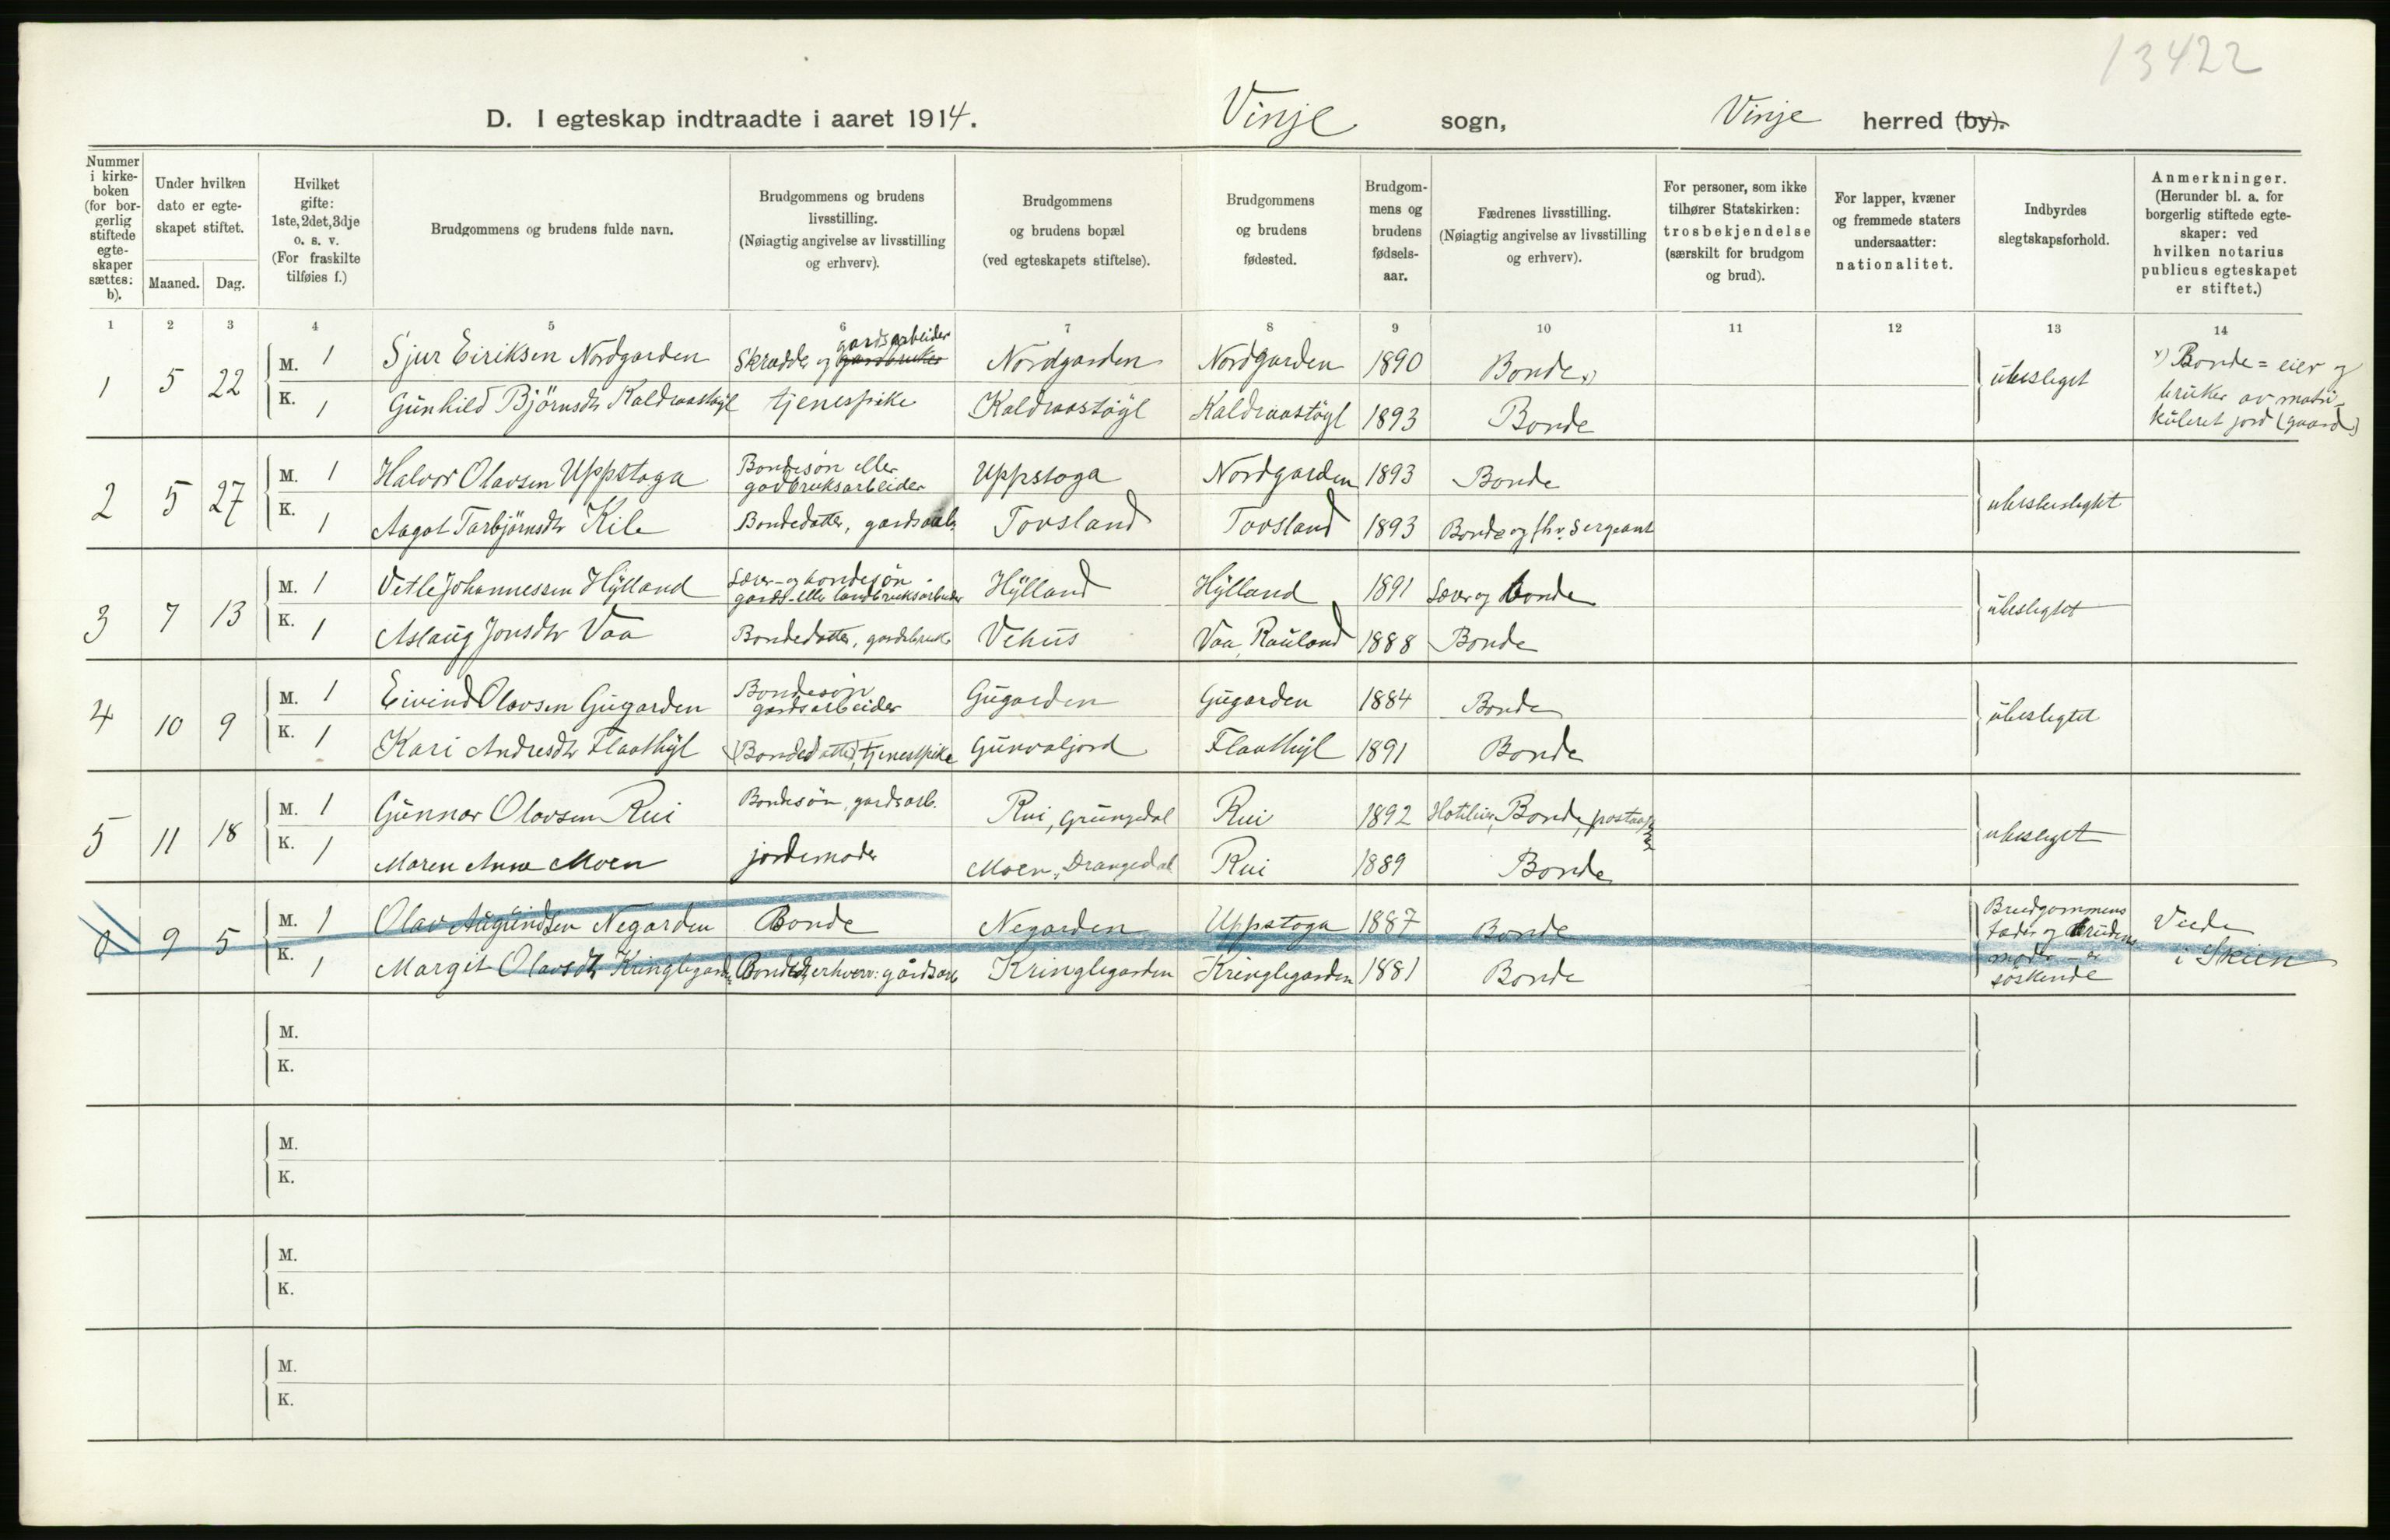 13422
D. I egteskap indtraadte i aaret 1914. Vinje sogn, Vinje herred (by).
Nummer i kirke-boken (for bor-gerlig stiftede egte-skaper sættes: b).
Under hvilken dato er egte-skapet stiftet.
Maaned. Dag.
Hvilket gifte: 1ste, 2det, 3dje o. s. v. (For fraskilte tilføies f.)
Brudgommens og brudens fulde navn.
Brudgommens og brudens livsstilling. (Nøiagtig angivelse av livsstilling og erhverv).
Brudgommens og brudens bopæl (ved egteskapets stiftelse).
Brudgommens og brudens fødested.
Brudgom-mens og brudens fødsels-aar.
Fædrenes livsstilling. (Nøiagtig angivelse av livsstilling og erhverv).
For personer, som ikke tilhører Statskirken: trosbekjendelse (særskilt for brudgom og brud).
For lapper, kvæner og fremmede staters undersaatter: nationalitet.
Indbyrdes slegtskapsforhold.
Anmerkninger. (Herunder bl. a. for borgerlig stiftede egte-skaper: ved hvilken notarius publicus egteskapet er stiftet.)
1 2 3 4 5 6 7 8 9 10 11 12 13 14
1 5 22 M. 1 Sjur Eiriksen Nordgarden Skrædder og gardbruker gardsarbeider Nordgarden Nordgarden 1890 Bonde x) ubesleget x) Bonde = eier og bruker av matri-kuleret jord (gaard)
K. 1 Gunhild Björnsdtr Kaldraastøyl tjenespike Kaldraastøyl Kaldraastøyl 1893 Bonde
2 5 27 M. 1 Halvor Olavsen Uppstoga Bondesøn eller gardbruksarbeider Uppstoga Nordgarden 1893 Bonde
K. 1 Aagot Tarbjörnsdtr Kile Bondedatter, gardsarb. Tovsland Tovsland 1893 Bonde og fhv. sergeant
3 7 13 M. 1 Vetle Johannessen Hylland Lærer- og bondesøn gards- eller landbruksarbeider Hylland Hylland 1891 Lærer og bonde ubeslegtet
K. 1 Aslaug Jonsdtr Vaa Bondedatter, Vehus Vaa, Rauland 1888 Bonde
4 10 9 M. 1 Eivind Olavsen Gugarden Bondesøn gardsarbeider Gugarden Gugarden 1884 Bonde ubeslegtet
K. 1 Kari Andresdtr Flaathyl (Bondedatter), tjenestpike Gunvaljord Flaathyl 1891 Bonde
5 11 18 M. 1 Gunnar Olavsen Rui Bondesøn, gardsarb. Rui, Grungedal Rui 1892 Bonde, ubeslegt
K. 1 Maren Anna Moen jordemoder Moen, Drangedal Rui 1889 Bonde
9 5 M. 1 Olav Augundsen Negarden Bonde Negarden Uppstoga 1887 Bonde Brudgommens fader og brudens moder er søskende Viede i Skien
K. 1 Margit Olavsdtr Kringlegarden Bondedtr, erhverv: gårdsarb Kringlegarden Kringlegarden 1881 Bonde
M.
K.
M.
K.
M.
K.
M.
K.